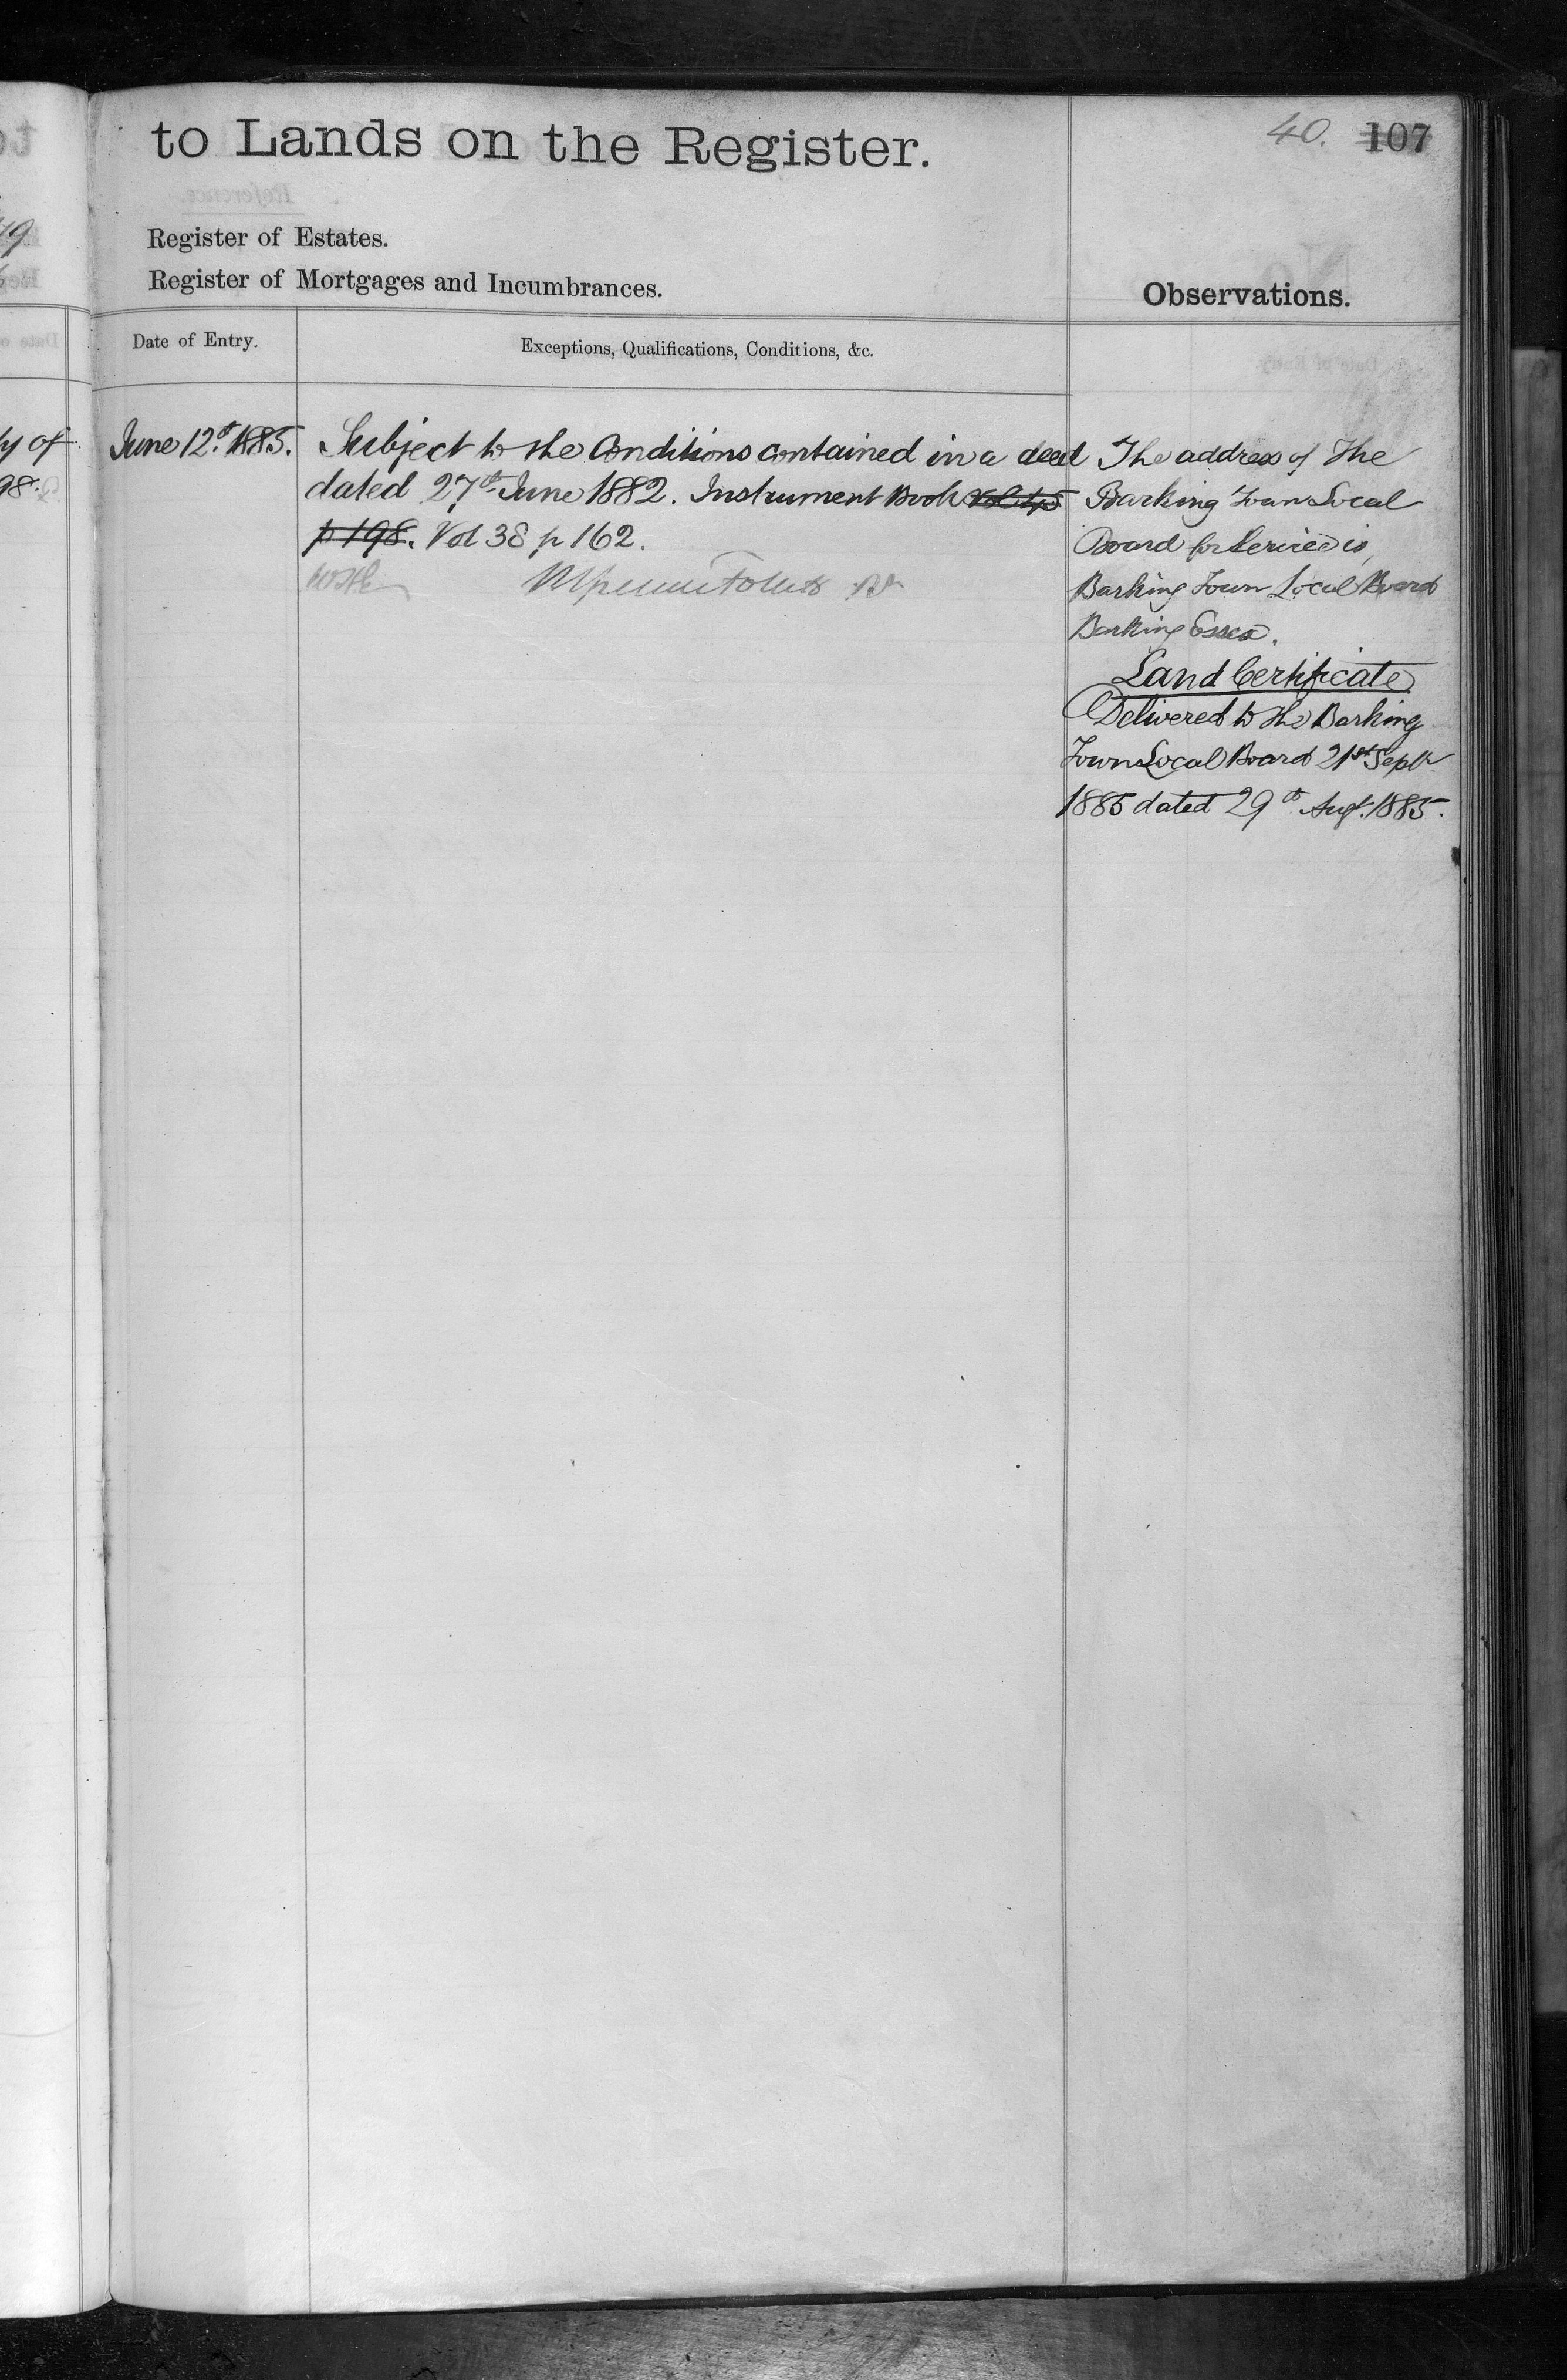 to Lands on the Register.
40. 107
Register of Estates.
Register of Mortgages and Incumbrances.
Observations.
Date of Entry.
Exceptions, Qualifications, Conditions, &c.
June 12th 1885.
Subject to the Conditions contained in a deed
dated 27th June 1882. Instrument Book Vol 45
p 198. Vol 38 p 162.
The address of The
Barking Town Local
Board for Service is,
Barking Town Local Board
Barking Essex.
Land Certificate
Delivered to the Barking
Town Local Board 21st Septr
1885 dated 29th Augt. 1885.
ty of
98.
49